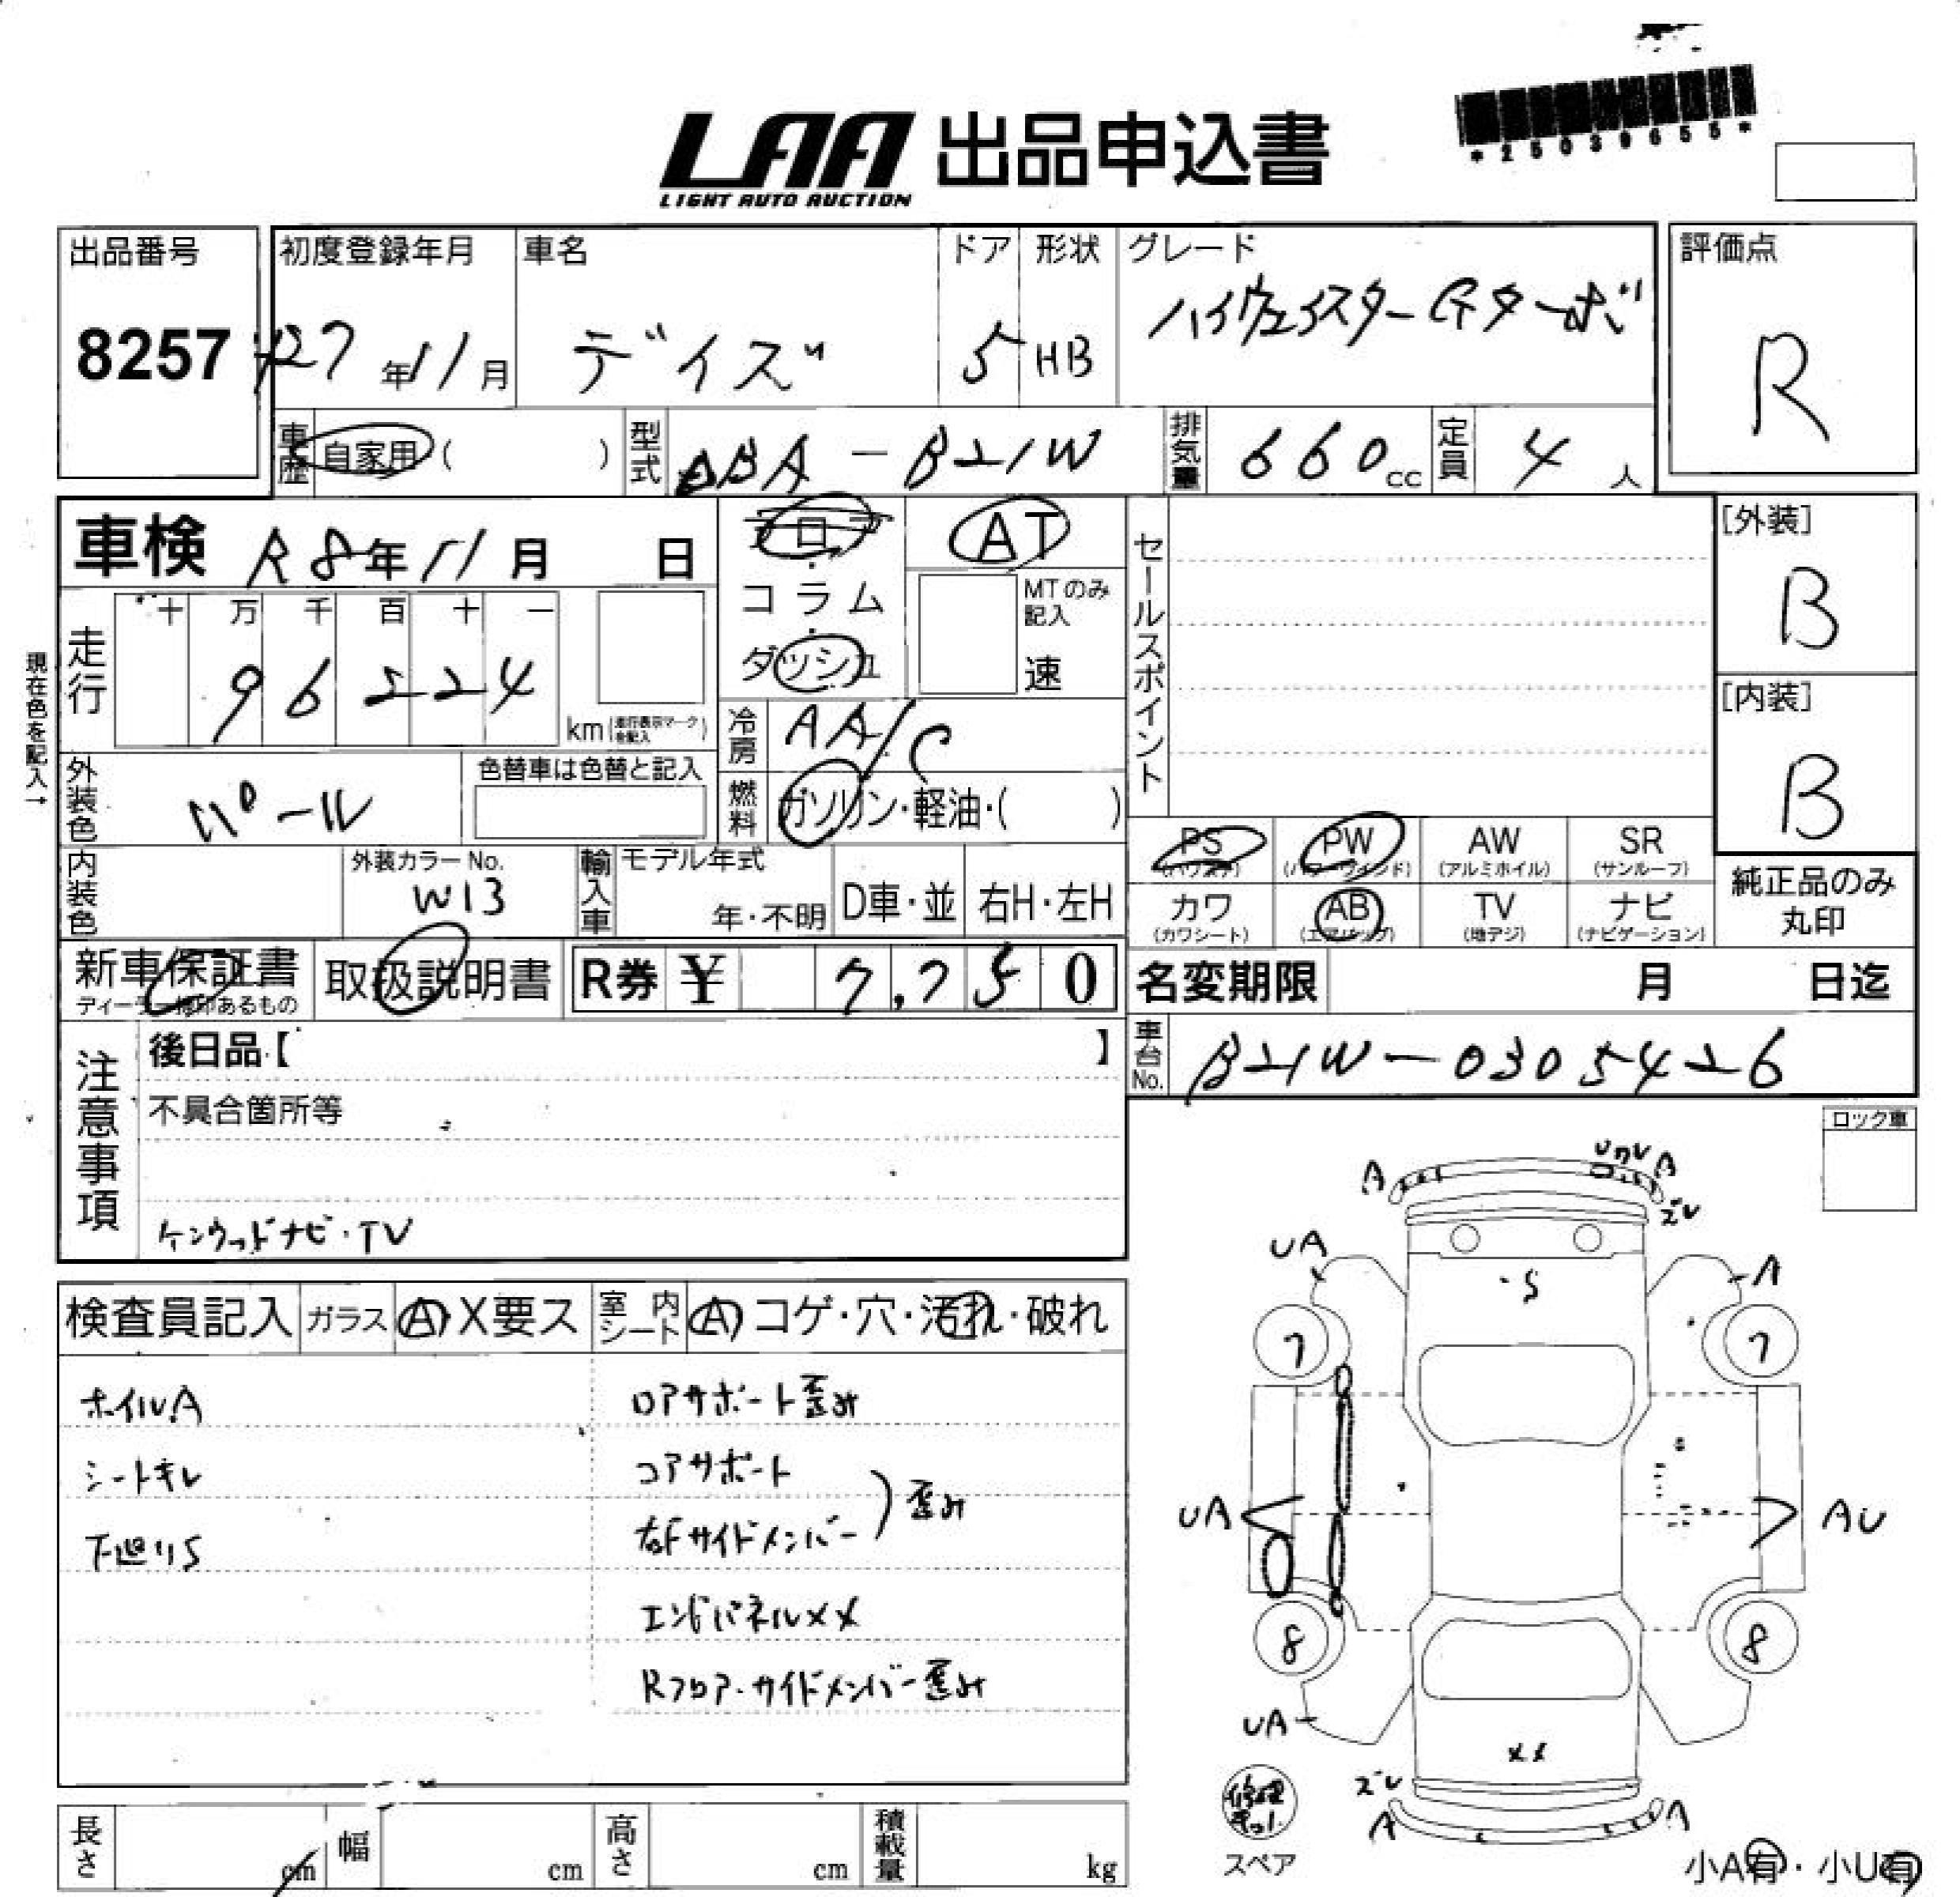 *25039655*
LAA 出品申込書
LIGHT AUTO AUCTION
出品番号 8257
初度登録年月 H27年11月
車名 デイズ
ドア 5
形状 HB
グレード ハイウェイスターGターボ
評価点 R
車歴 自家用( )
型式 DBA-B21W
排気量 660cc
定員 4人
車検 R8年11月 日
フロア
コラム
ダッシュ
AT
MTのみ記入
速
セールスポイント
[外装] B
[内装] B
現在色を記入→
走行 十万千百十一
96224 km(走行表示マークを記入)
冷房 AA/C
燃料 ガソリン・軽油・( )
外装色 パール
色替車は色替と記入
内装色
外装カラーNo. W13
輸入車 モデル年式 年・不明
D車・並
右H・左H
PS (パワステ)
PW (パワーウインド)
AW (アルミホイル)
SR (サンルーフ)
カワ (カワシート)
AB (エアバッグ)
TV (地デジ)
ナビ (ナビゲーション)
純正品のみ丸印
新車保証書
ディーラー捺印あるもの
取扱説明書
R券 ¥ 7,750
名変期限 月 日迄
車台No. B21W-0305426
注意事項
後日品【 】
不具合箇所等
ケンウッドナビ・TV
ロック車
検査員記入
ガラス A X要ス
室内シート A コゲ・穴・汚れ・破れ
ホイルA
シートキレ
下廻りS
ロアサポート歪み
コアサポート
右Fサイドメンバー
歪み
エンドパネルXX
Rフロア・サイドメンバー歪み
A
A
ズレ
UA
A
S
7
7
UA
AU
8
8
UA
XX
ズレ
A
A
修理キット
スペア
小A有・小U有
長さ cm
幅 cm
高さ cm
積載量 kg